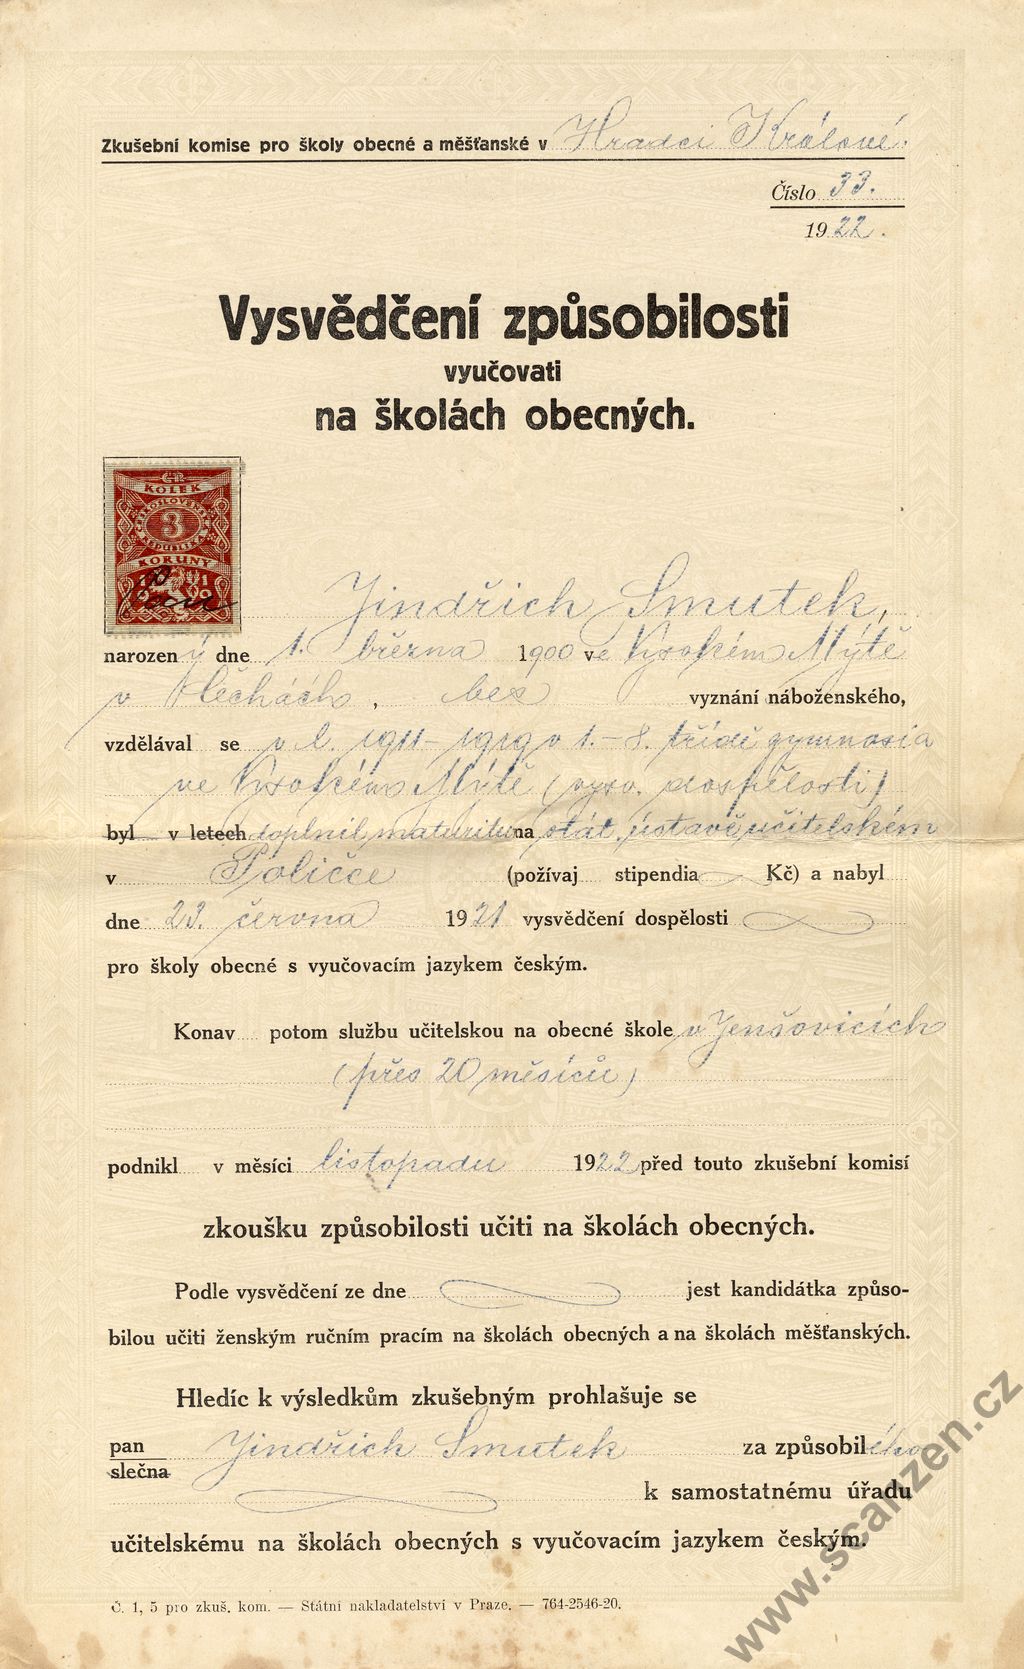 Zkušební komise pro školy obecné a měšťanské v Hradci Králové.
Číslo 33.
1922.
Vysvědčení způsobilosti
vyučovati
na školách obecných.
ČR
KOLEK
ČESKOSLOVENSKÁ
REPUBLIKA
3
KORUNY
Jindřich Smutek,
narozený dne 1. března 1900 ve Vysokém Mýtě
v Čechách, bez vyznání náboženského,
vzdělával se v l. 1911–1919 v 1.–8. třídě gymnasia
ve Vysokém Mýtě (vysv. dospělosti)
byl v letech doplnil maturitu na stát. ústavě učitelském
v Poličce (požívaj stipendia Kč) a nabyl
dne 23. června 1921 vysvědčení dospělosti
pro školy obecné s vyučovacím jazykem českým.
Konav potom službu učitelskou na obecné škole v Jenšovicích
(přes 20 měsíců)
podnikl v měsíci listopadu 1922 před touto zkušební komisí
zkoušku způsobilosti učiti na školách obecných.
Podle vysvědčení ze dne jest kandidátka způso-
bilou učiti ženským ručním pracím na školách obecných a na školách měšťanských.
Hledíc k výsledkům zkušebným prohlašuje se
pan Jindřich Smutek za způsobilého
slečna
k samostatnému úřadu
učitelskému na školách obecných s vyučovacím jazykem českým.
Č. 1, 5 pro zkuš. kom. — Státní nakladatelství v Praze. — 764-2546-20.
www.scanzen.cz